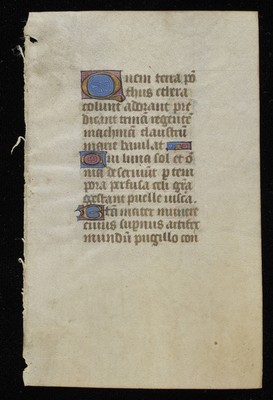 Quem terra põ
thus ethera
colunt adorant pre
dicant trinã regentẽ
machinam claustrũ
marie baiulat
Cui luna sol et õ
nia deserviunt p tem
pora perfusa celi grã
gestant puelle visce.
Btã mater munere
cuius supnus artifex
mundũ pugillo con